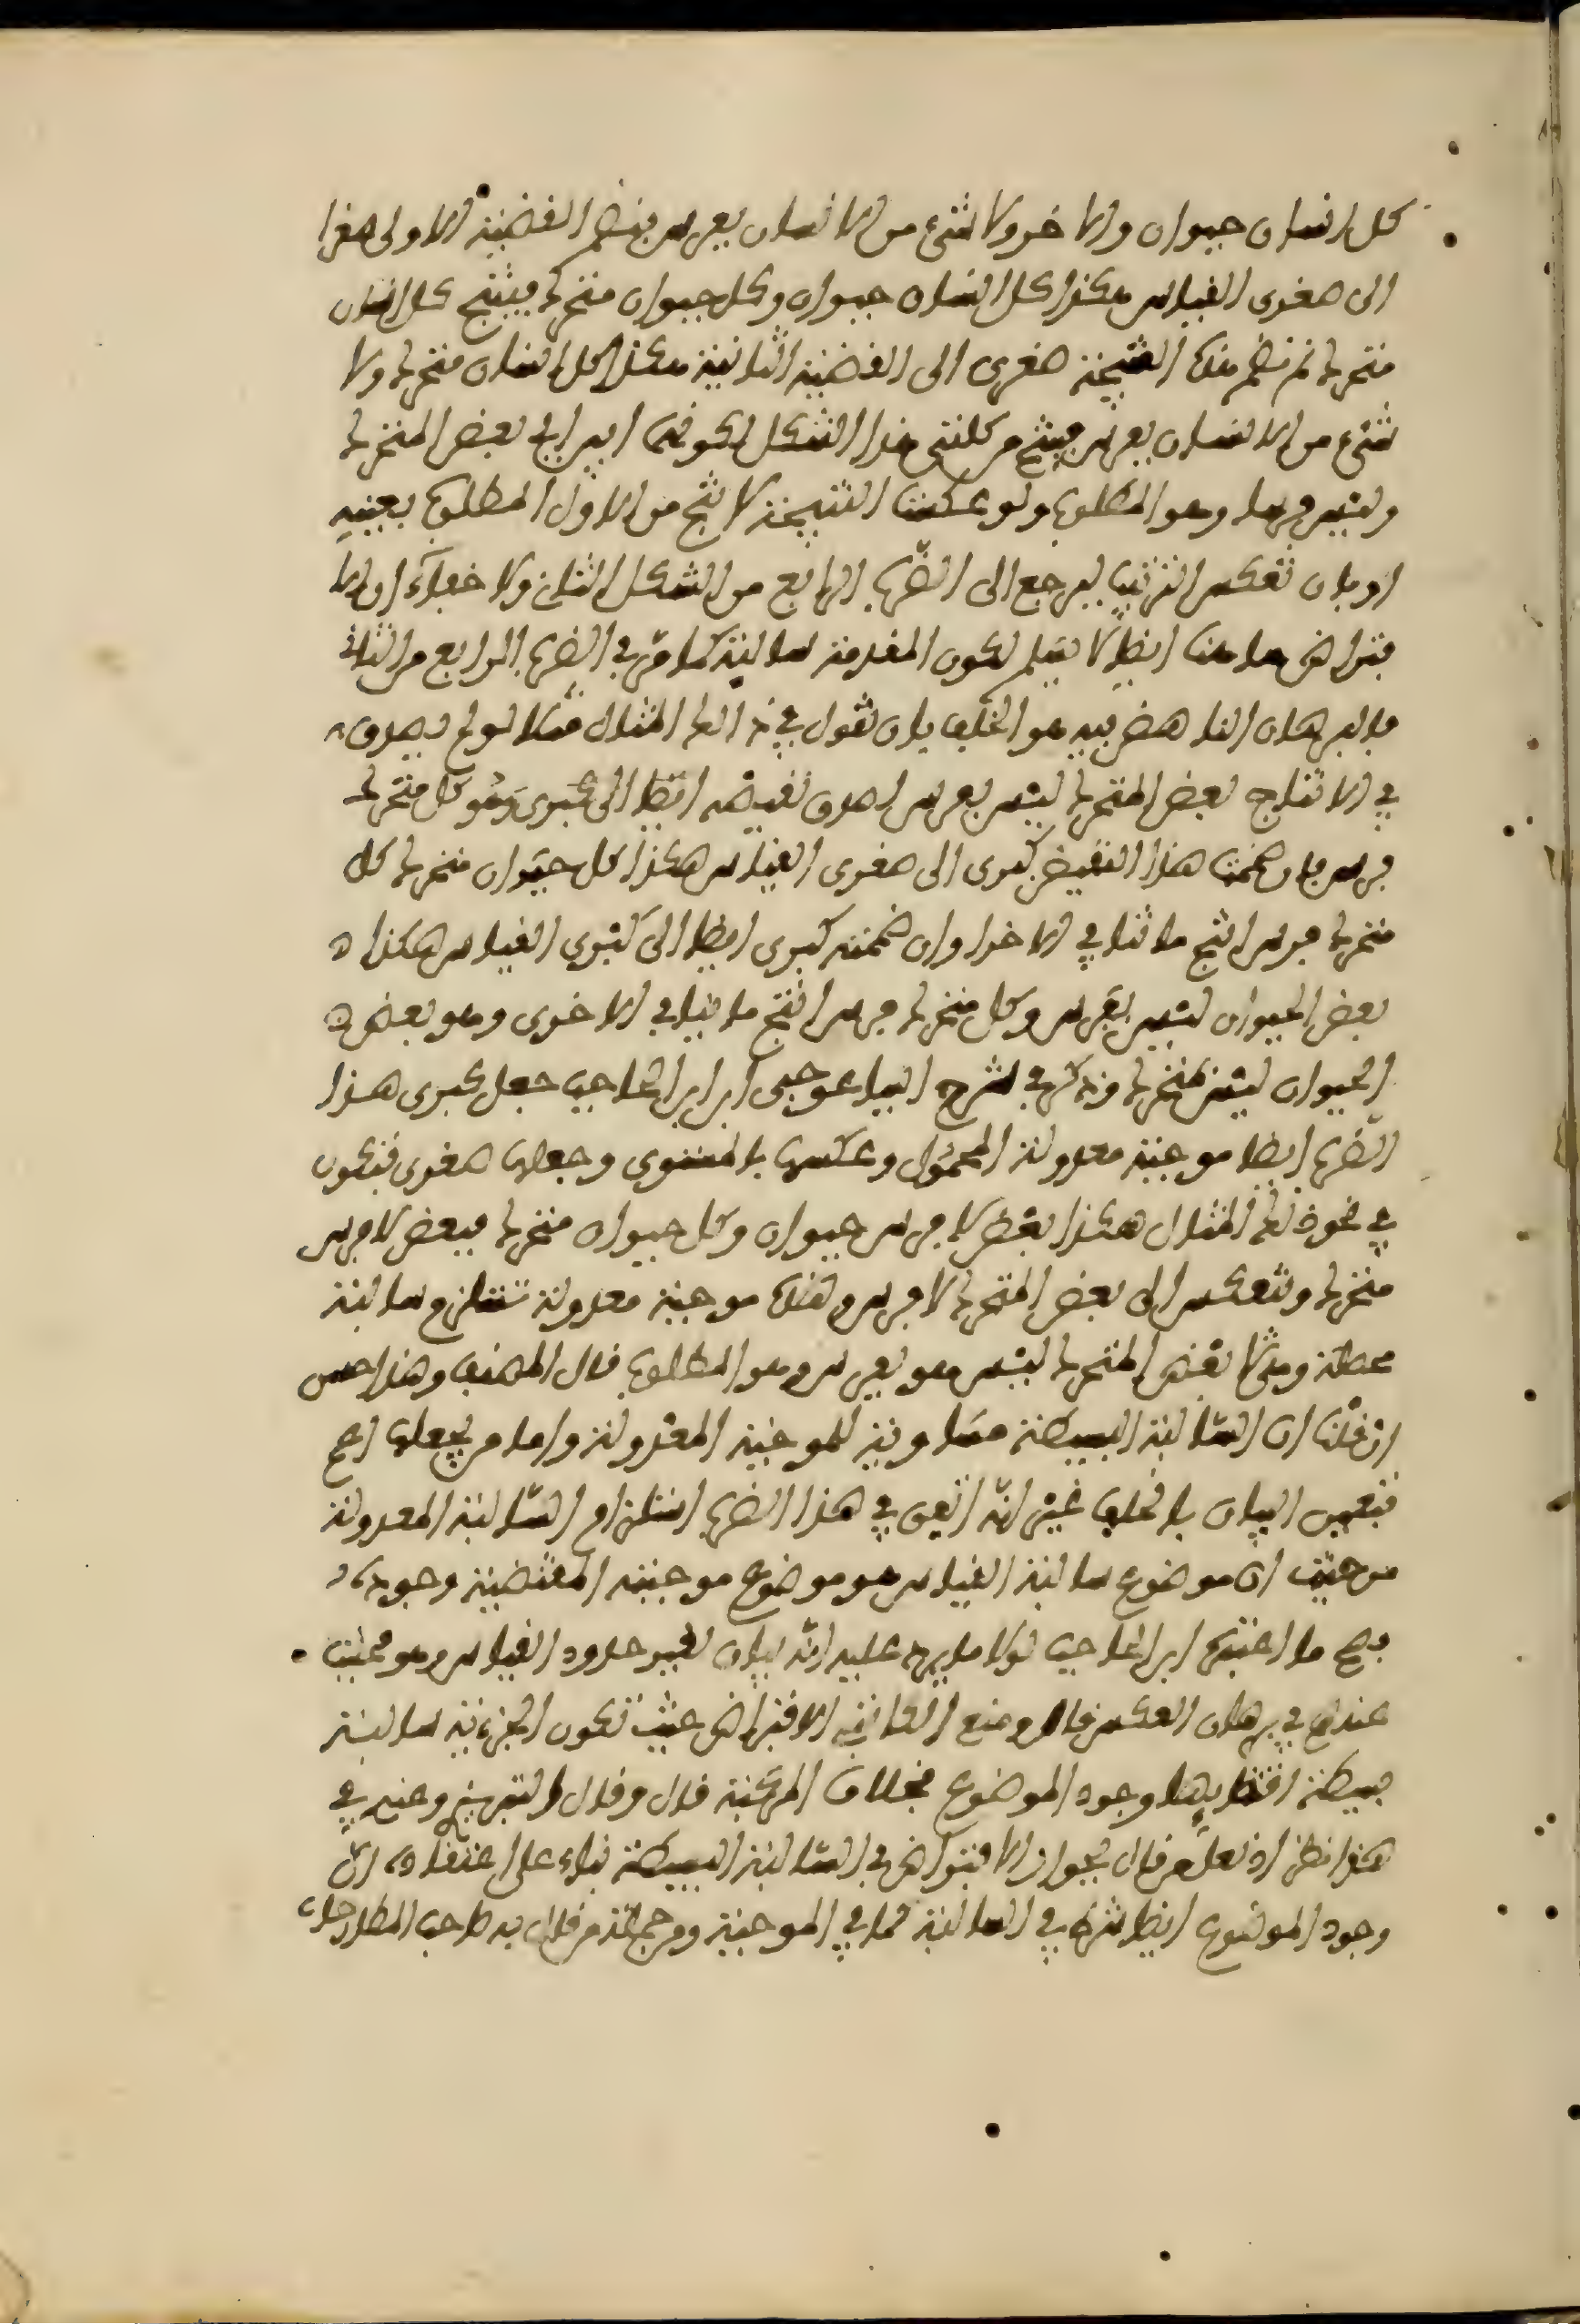 كل انسان حيوان والاخر ولا شيء من الانسان بفرس فنضم القضية الاولى صغرا
الى صغرى القياس هكذا كل انسان حيوان وكل حيوان متحرك فينتج كل انسان
متحرك ثم نضم هذه النتيجة صغرى الى القضية الثانية هكذا كل انسان متحرك ولا
شيء من الانسان بفرس فينتج من ثالث هذا الشكل لكونه ابدا في بعض المتحرك
وليس فرسا وهو المطلوب ولو عكسنا النتيجة لانتج من الاول المطلوب بعينه
او بان تعكس الترتيب ليرجع الى الضرب الرابع من الشكل الثاني ولا خفاء ان الا
فتراض هاهنا ايضا لا يتم لكون المقدمة سالبة كما مر في الضرب الرابع من الثاني
فالبرهان الناهض فيه هو الخلف بان نقول في ذلك المثال مثلا لو لم يصدق
في الانتاج بعض المتحرك ليس بفرس لصدق نقيضه ايضا الى كبرى وهو كل متحرك
فرس فان ضممت هذا النقيض كبرى الى صغرى القياس هكذا كل حيوان متحرك كل
متحرك فرس انتج ما ينافي الاخرا وان ضممته كبرى ايضا الى كبرى القياس هكذا
بعض الحيوان ليس بفرس وكل متحرك فرس انتج ما ينافي الاخرى وهو بعض
الحيوان ليس بمتحرك وذكر في شرح ايساغوجي ان ابن الحاجب جعل كبرى هذا
الضرب ايضا موجبة معدولة المحمول وعكسها بالمستوى وجعلها صغرى فتكون
في نحو ذلك المثال هكذا بعض لا فرس حيوان وكل حيوان متحرك فبعض لا فرس
متحرك وتنعكس الى بعض المتحرك لا فرس وهذه موجبة معدولة تستلزم سالبة
محصلة ومثلها بعض المتحرك ليس هو بفرس وهو المطلوب قال المصنف وهذا حسن
ان قلنا ان السالبة البسيطة مساوية للموجبة المعدولة واما من يجعلها اعم
فتعين البيان بالخلف غير انه اتفق في هذا الضرب استلزام السالبة المعدولة
من حيث ان موضوع سالبة القياس هو موضوع موجبته المقتضية وجوده
فصح ما اعتبره ابن الحاجب لولا ما يرد عليه انه بيان لغير حدود القياس وهو مجتنب
عندهم في برهان العكس قال ومنع الاقتراض حيث تكون الجزئية سالبة
بسيطة وجود الموضوع بخلاف المركبة قال وقال وغيره في
هكذا نظر اذ لعل من قال بجواز الاقتراض في السالبة البسيطة بناء على اعتقاده ان
وجود الموضوع ايضا شرط في السالبة كما في الموجبة ومن جملة من قال به صاحب المطارحات